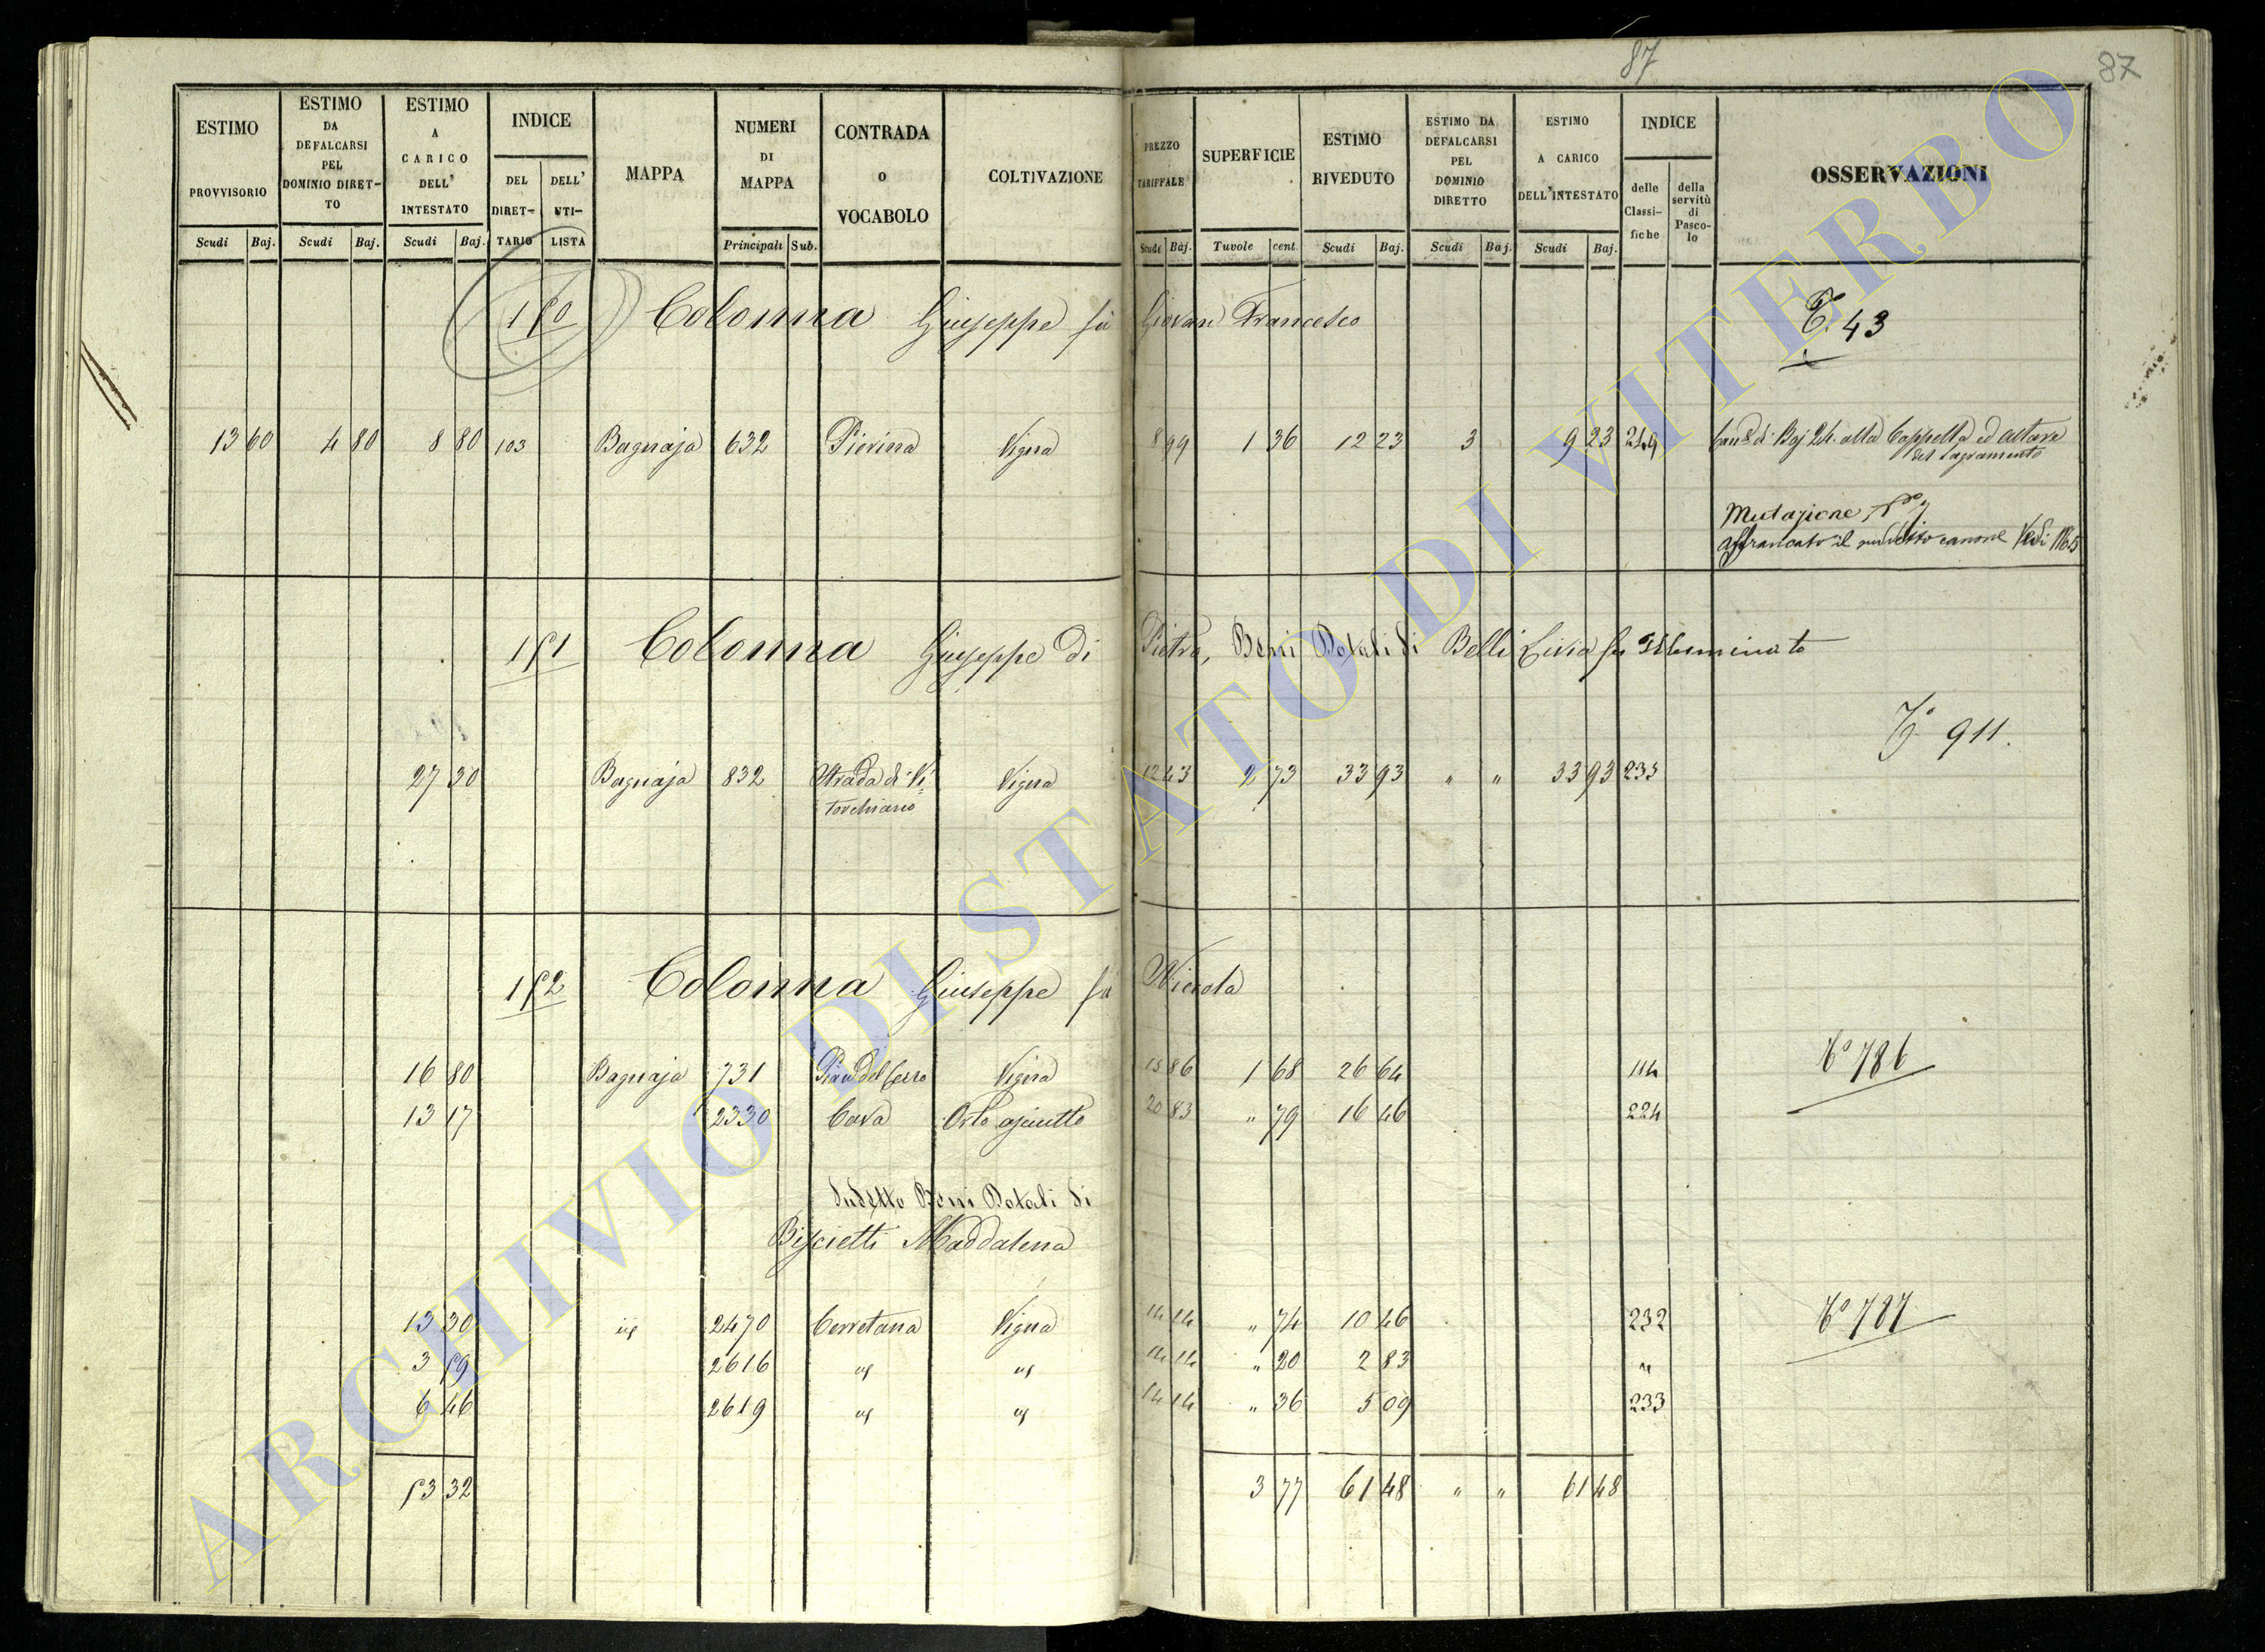 87
87
ESTIMO PROVVISORIO
Scudi Baj.
ESTIMO DA DEFALCARSI PEL DOMINIO DIRET-TO
Scudi Baj.
ESTIMO A CARICO DELL' INTESTATO
Scudi Baj.
INDICE
DEL DIRET-TARIO
DELL' UTI-LISTA
MAPPA
NUMERI DI MAPPA
Principali Sub.
CONTRADA O VOCABOLO
COLTIVAZIONE
PREZZO TARIFFALE
Scudi Baj.
SUPERFICIE
Tuvole cent
ESTIMO RIVEDUTO
Scudi Baj.
ESTIMO DA DEFALCARSI PEL DOMINIO DIRETTO
Scudi Baj.
ESTIMO A CARICO DELL'INTESTATO
Scudi Baj.
INDICE
delle Classi-fiche
della servitù di Pasco-lo
OSSERVAZIONI
150 Colonna Giuseppe fù Giovan Francesco
T. 43
13 60 4 80 8 80 103 Bagnaja 632 Pierina Vigna 8 99 1 36 12 23 3 9 23 249 di Baj 24. alla Cappella ed altare
del Sagramento
Mutazione
affrancato il suddetto canone Vedi 1165
151 Colonna Giuseppe di Pietro, Beni Dotali di Belli Livia fu Illuminato
To 911.
27 30 Bagnaja 832 Strada di Vi= Vigna 12 43 2 73 33 93 " " 33 93 235
torchiano
152 Colonna Giuseppe fù Nicola
To 786
16 80 Bagnaja 731 Pian del Cerro Vigna 15 86 1 68 26 64 114
13 17 2330 Cava Orto asciutto 20 83 " 79 16 46 224
Sudetto Beni Dotali di
Biscietti Maddalena
To 787
13 30 id 2470 Cerretana Vigna 14 14 " 74 10 46 232
3 59 2616 id id 14 14 " 20 2 83 "
6 46 2619 id id 14 14 " 36 5 09 233
53 32 3 77 61 48 " " 61 48
ARCHIVIO DI STATO DI VITERBO